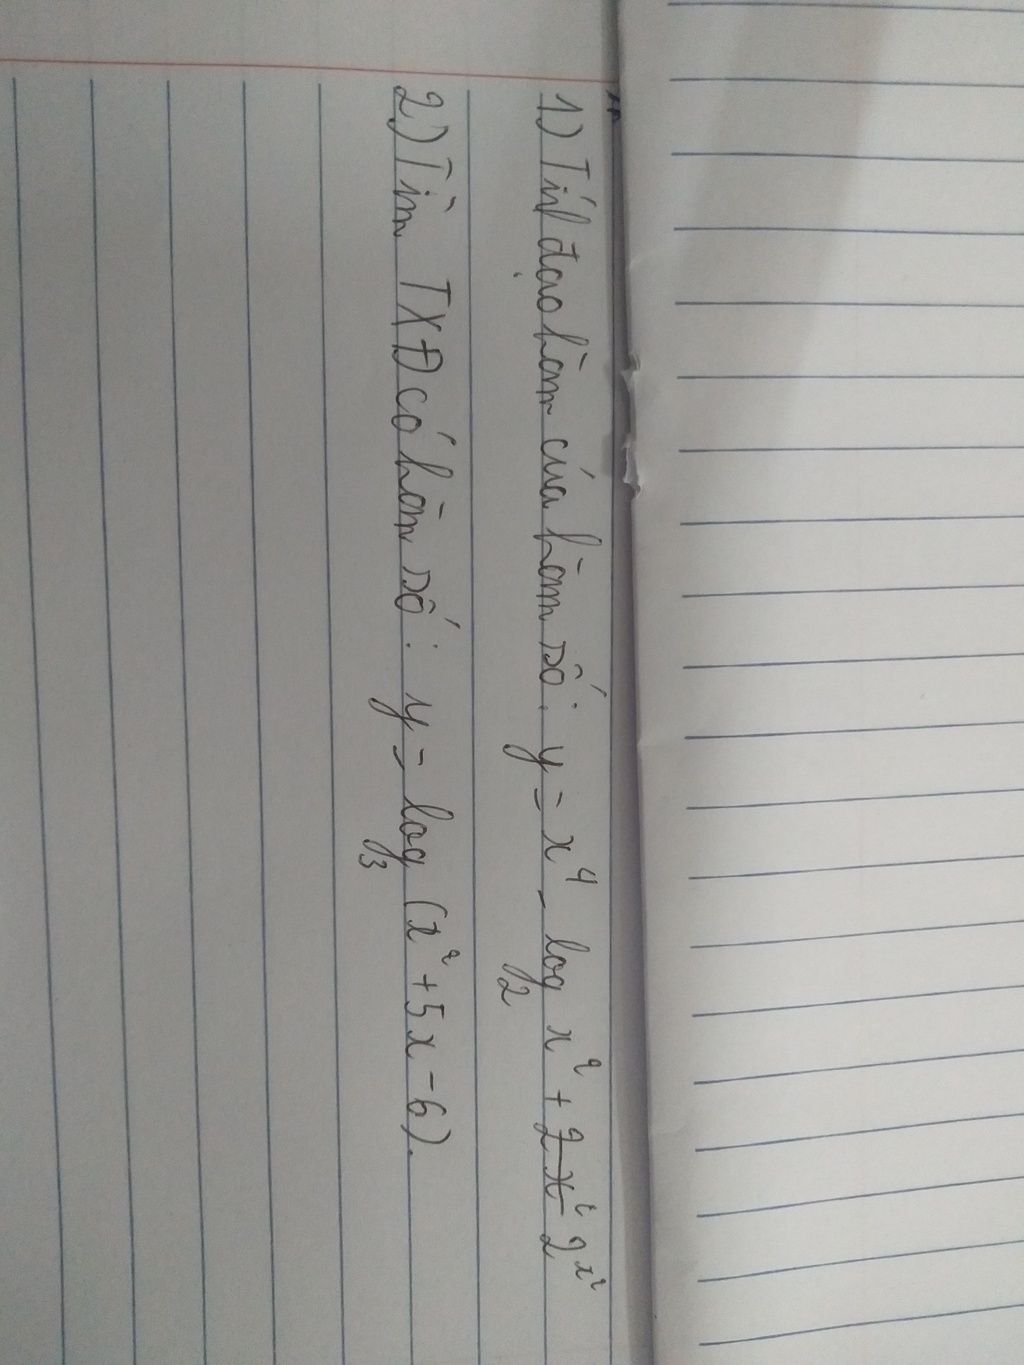 1) Tính đạo hàm của hàm số: y = x⁴ - log₂ x² + 2^x²
2) Tìm TXĐ có hàm số: y = log₃ (x² + 5x - 6).